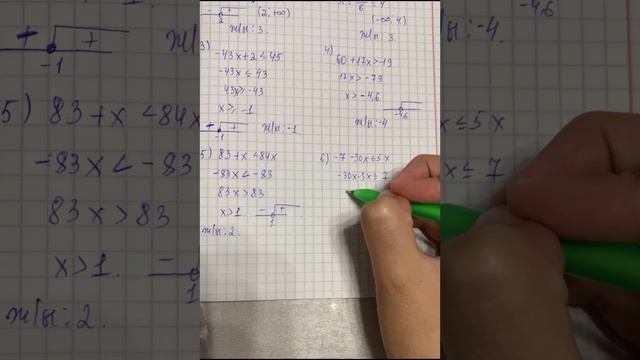 (2; +∞)
ж/ы: 3.
6
(-∞; 4)
ж/ы: 3.
3)
-43x + 2 ≤ 45
-43x ≤ 43
43x ≥ -43
x ≥ -1
+ +
-1
ж/ы: -1
4)
60 + 17x > -19
17x > -79
x > -4,6
-4,6
ж/ы: -4
5) 83 + x < 84x
-83x < -83
83x > 83
x > 1
- +
1
ж/ы: 2.
6) -7 - 30x ≤ 5x
-30x - 5x ≤ 7
+ +
-1
5) 83 + x < 84x
-83x < -83
83x > 83
x > 1.
-
1
ж/ы: 2.
-4,6
ж/ы: -4.
x ≤ 5x
x ≤ 7